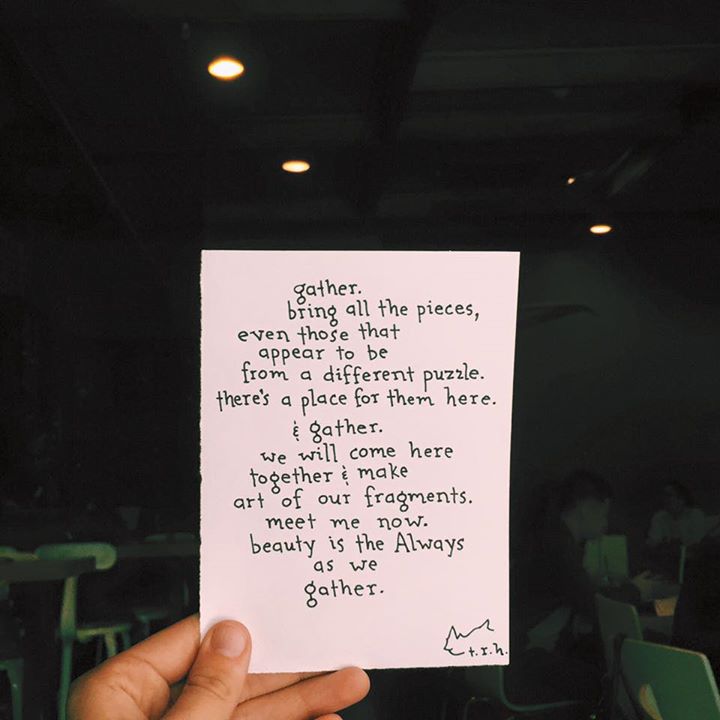 gather.
bring all the pieces,
even those that
appear to be
from a different puzzle.
there's a place for them here.
& gather.
we will come here
together & make
art of our fragments.
meet me now.
beauty is the Always
as we
gather.
t.r.h.